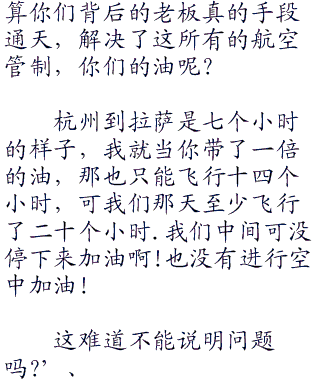 算你们背后的老板真的手段
通天，解决了这所有的航空
管制，你们的油呢？
杭州到拉萨是七个小时
的样子，我就当你带了一倍
的油，那也只能飞行十四个
小时，可我们那天至少飞行
了二十个小时.我们中间可没
停下来加油啊!也没有进行空
中加油！
这难道不能说明问题
吗?’、